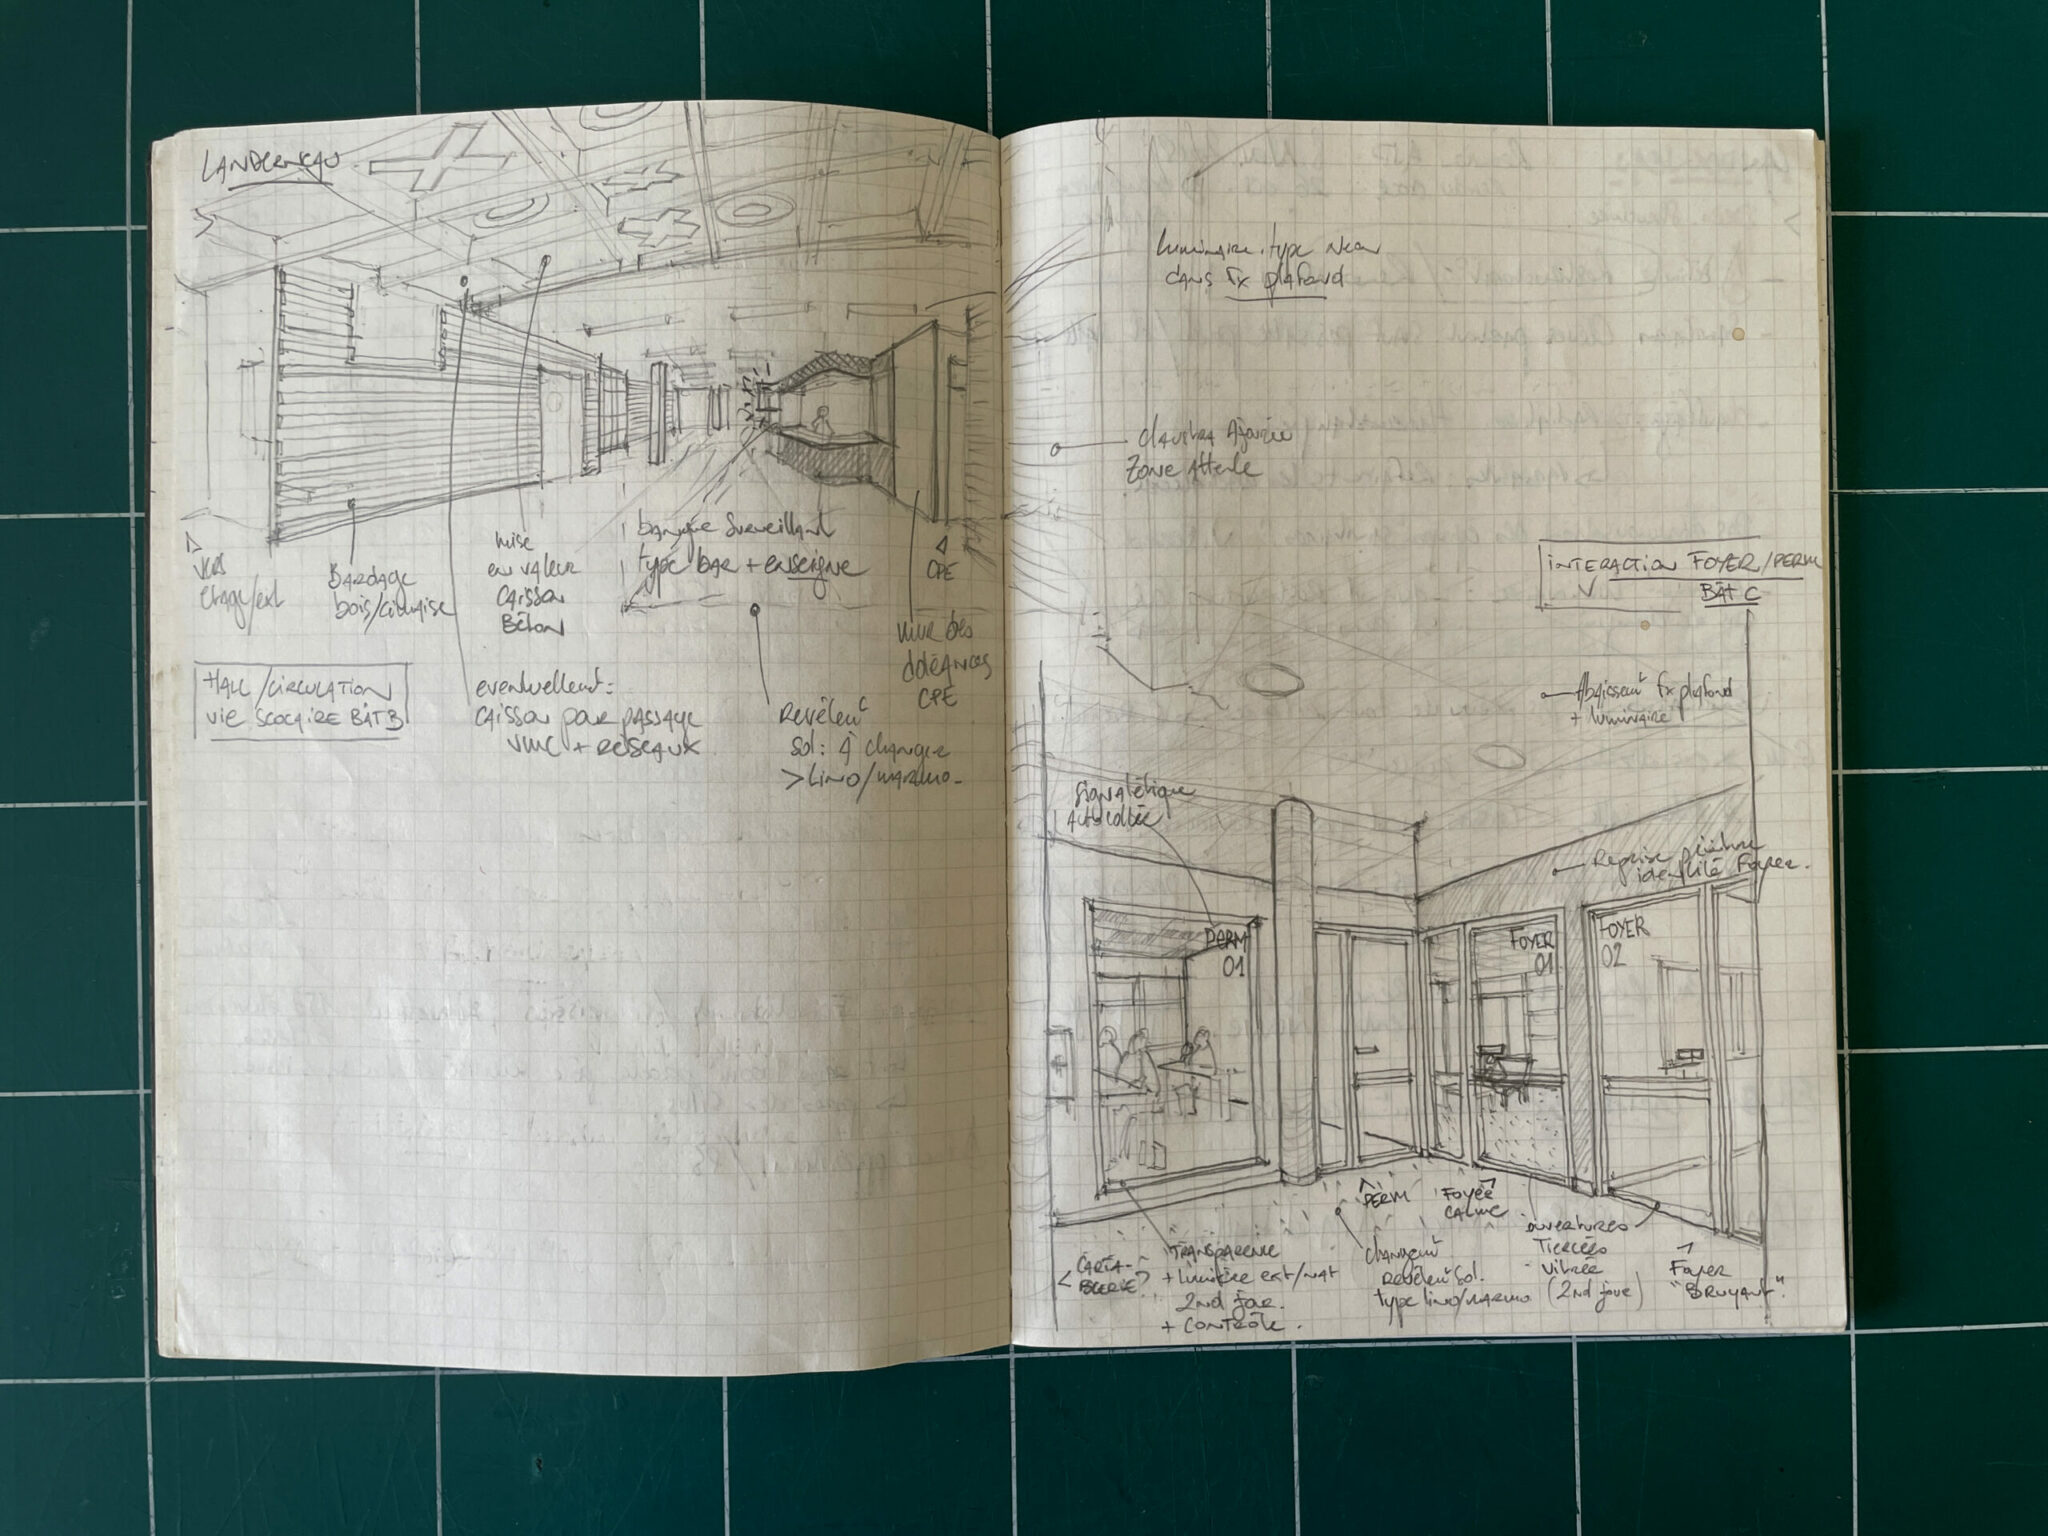 LANDERNEAU
vers
étage/ext
Bardage
bois/cimaise
mise
en valeur
caisson
Béton
banque surveillant
type bar + enseigne
CPE
mur des
doléances
CPE
HALL/CIRCULATION
VIE SCOCAIRE BÂT B
eventuellemt:
caisson pour passage
VMC + RÉSEAUX
Revêlemt
sol: à changer
> Lino/marmo-
luminaire type neon
dans fx plafond
claustra Ajourée
Zone Attente
INTERACTION FOYER/PERM
BÂT C
Abaissemt fx plafond
+ luminaire
Signalétique
Autocollée
Reprise peinture
identité Foyer.
PERM
01
FOYER
01
FOYER
02
< CARTA-
BLERIE?
TRANSPARENCE
+ lumière ext/nat
2nd jour.
+ CONTRÔLE.
PERM
FOYER
CALME
changemt
Revêlemt sol.
type lino/marmo
ouvertures
Tiercées
vitrée
(2nd jour)
Foyer
"BRUYANT".